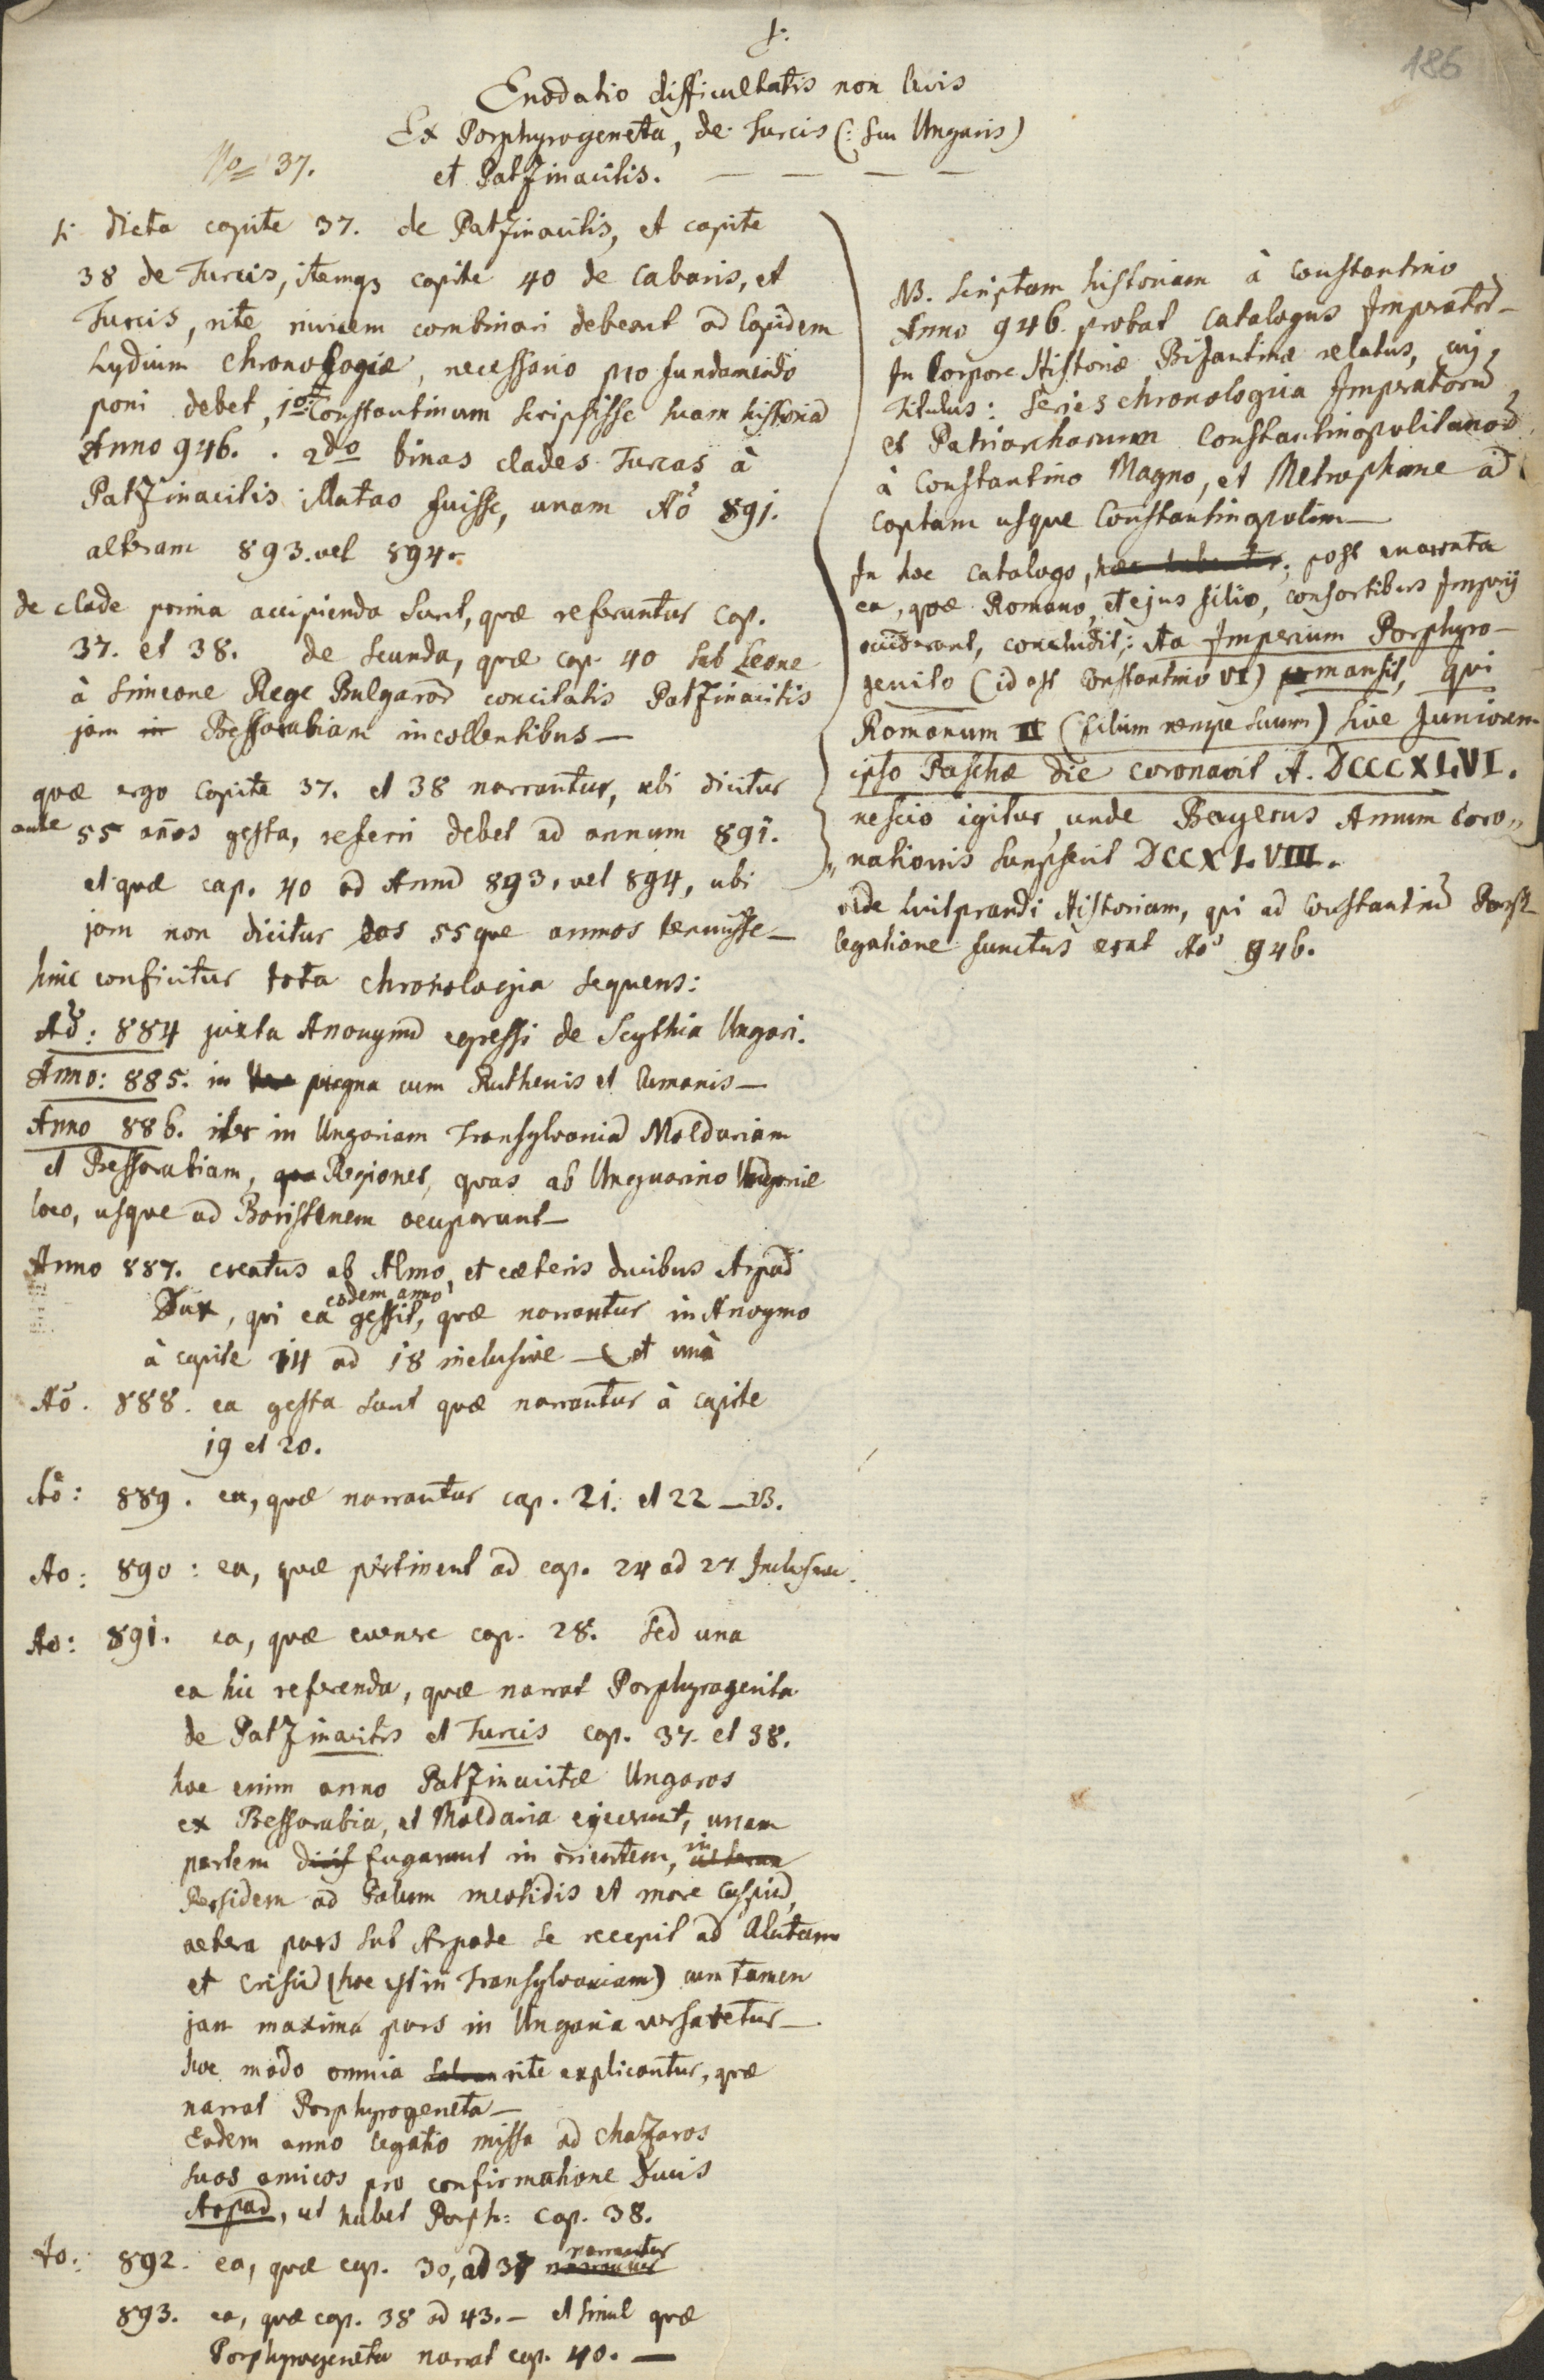 1.
186
Enodatio difficultatis non levis
Ex Porphyrogeneta, de Turcis (: seu Ungaris)
No 37.
et Patzinacitis. — — — —
Si dicta capite 37. de Patzinacitis, et capite
38 de Turcis, itemqз capite 40 de Cabaris, et
Turcis, rite invicem combinari debeant ad lapidem
Lydium Chronologiæ, necessario pro fundamento
poni debet, 1o Constantinum scripsisse suam historiã
Anno 946. . 2do binas clades Turcas à
Patzinacitis illatas fuisse, unam Aõ 891.
alteram 893. vel 894.
de clade prima accipienda sunt, quæ referuntur Cap.
37. et 38. de secunda, quæ cap. 40 sub Leone
à Simeone Rege Bulgarõ concitatis Patzinacitis
jam in Bessarabiam incollentibus —
quæ ergo capite 37. et 38 narrantur, ubi dicitur
ante 55 años gesta, referri debet ad annum 891.
et quæ cap. 40 ad Annũ 893. vel 894, ubi
jam non dicitur eos 55 que annos tenuisse —
hinc conficitur tota chronologia sequens:
Aõ: 884 juxta Anonymũ egressi de Scythia Ungari.
Anno: 885. in pugna cum Ruthenis et Cumanis —
Anno 886. iter in Ungariam Transylvaniã Moldaviam
et Bessarabiam, Regiones, quas ab Unguarino Ungariæ
loco, usque ad Boristenem occuparunt —
Anno 887. creatus ab Almo, et cæteris ducibus Arpad
Dux, qui ea eodem anno gessit, quæ narrantur in Anoymo
à capite 14 ad 18 inclusive — et una
Aõ. 888. ea gesta sunt quæ narrantur à capite
19 et 20.
Aõ: 889. ea, quæ narrantur cap. 21. et 22 — 23.
Ao: 890: ea, quæ pertinent ad cap. 24 ad 27 Inclusive.
Ao: 891. ea, quæ evenere cap. 28. Sed una
ea hic referenda, quæ narrat Porphyrogenita
de Patzinacitis et Turcis cap. 37. et 38.
hoc enim anno Patzinacitæ Ungaros
ex Bessarabia, et Moldavia ejecerunt, unam
partem fugarunt in orientem, in
Persidem ad Palum meotidis et mare Caspiũ,
altera pars sub Arpade se recepit ad Alutam
et Crisiũ (hoc est in Transylvaniam) cum tamen
jam maxima pars in Ungaria versaretur —
hoc modo omnia rite explicantur, quæ
narrat Porphyrogeneta —
Eodem anno legatio missa ad Chazaros
suos amicos pro confirmatione Ducis
Arpad, ut habet Porph: cap. 38.
Ao: 892. ea, quæ cap. 30, ad 37 narrantur
893. ea, quæ cap. 38 ad 43. — et simul quæ
Porphyrogeneta narrat cap. 40. —
NB. Scriptam historiam à Constantino
Anno 946. probat Catalogus Imperatorũ
In Corpore Historiæ Bisantinæ relatus, cuj,
titulus: Series chronologica Imperatorũ
et Patriarcharum Constantinopolitanorũ
à Constantino Magno, et Metrophane ad
captam usque Constantinopolim —
In hoc catalogo, hæc habentur, post enarrata
ea, quæ Romano, et ejus filio, consortibus Imperij
acciderant, concludit: Ita Imperium Porphyro-
genito (id est Constantino VI) permansit, qui
Romanum II (filium nempe suum) sive Juniorem
ipso Paschæ die coronavit A. DCCCXLVI.
nescio igitur, unde Bayerus Annum Coro„
„nationis sumpserit DCCXLVIII.
vide Luitprandi Historiam, qui ad Constantinũ Porph
legatione functus erat Aõ 946.